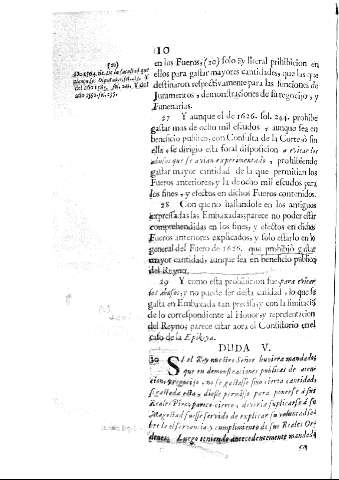 110
(20)
en los Fueros, (20) solo ay literal prihibicion en
ellos para gastar mayores cantidades, que las que
destinaron respectivamente para las funciones de
Juramentos, demonstraciones de su regocijo, y
Funerarias.
27 Y aunque el de 1626. fol. 244. prohibe
gastar mas de ocho mil escudos, aunque sea en
beneficio publico, con Consulta de la Corte, ò sin
ella, se dirigiò esta foral disposicion a evitar los
abusos que se avian experimentado, prohibiendo
gastar mayor cantidad de la que permitian los
Fueros anteriores, y la de ocho mil escudos para
los fines, y efectos en dichos Fueros contenidos.
28 Con que no hallandose en los antiguos
expressadas las Embaxadas, parece no poder estàr
comprehendidas en los fines, y efectos en dichos
Fueros anteriores explicados, y solo estarlo en lo
general del Fuero de 1626. que prohibiò gastar
mayor cantidad, aunque sea en beneficio publico
del Reyno.
29 Y como esta prohibicion fue para evitar
los abusos, y no puede ser desta calidad, lo que se
gasta en Embaxada tan precisa, y con la limitaciò
de lo correspondiente al Honor, y representacion
del Reyno; parece estàr aora el Consistorio en el
caso de la Epikeya.
DUDA V.
30 SI el Rey nuestro Señor huviera mandado
que en demostraciones publicas de aten-
cion, y regocijo, no se gastasse sino cierta cantidad,
si gastada esta, y diesse permisso para ponerse à sus
Reales Pies, parece cierto, deveria suplicarse à su
Magestad fuesse servido de explicar su voluntad so-
bre la observancia, y cumplimiento de sus Reales Or-
denes. Luego teniendo antecedentemente mandado
en